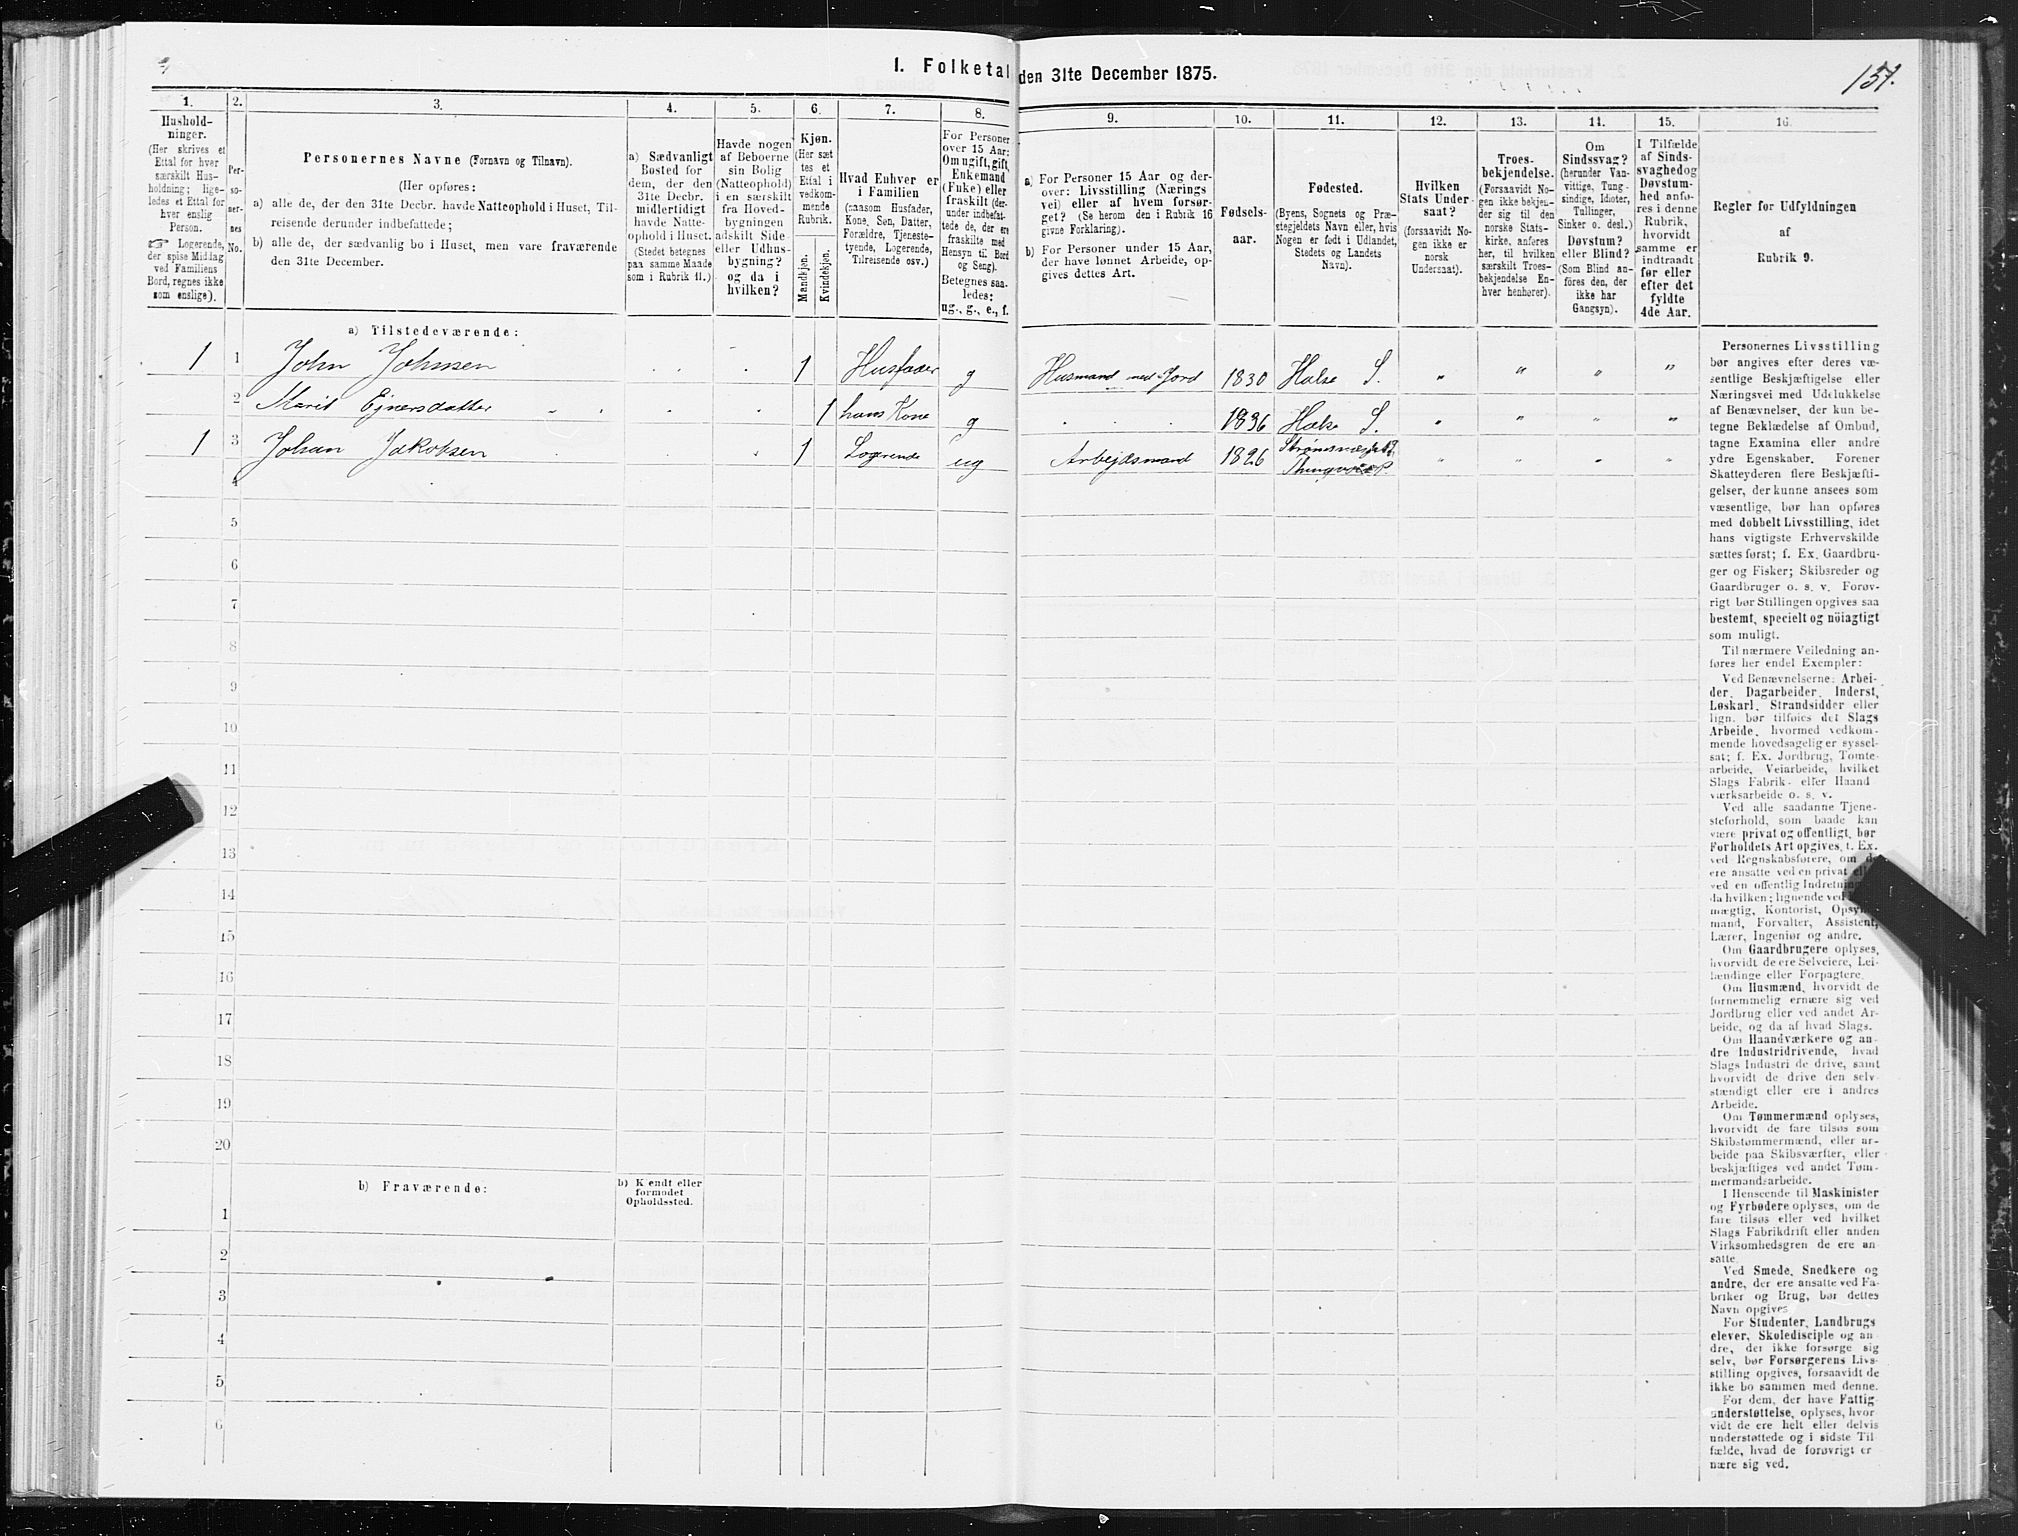 I. Folketal den 31te December 1875.
151.
1. 2. 3. 4. 5. 6. 7. 8. 9. 10. 11. 12. 13. 14. 15. 16.
Hushold-
ninger.
(Her skrives et
Ettal for hver
særskilt Hus-
holdning; lige-
ledes et Ettal for
hver enslig
Person.
☞ Logerende,
der spise Middag
ved Familiens
Bord, regnes ikke
som enslige).
Per-
so-
ner-
nes
No.
Personernes Navne (Fornavn og Tilnavn).
(Her opføres:
a) alle de, der den 31te Decbr. havde Natteophold i Huset, Til-
reisende derunder indbefattede;
b) alle de, der sædvanlig bo i Huset, men vare fraværende
den 31te December.
a) Sædvanligt
Bosted for
dem, der den
31te Decbr.
midlertidigt
havde Natte-
ophold i Huset.
(Stedet betegnes
paa samme Maade
som i Rubrik 11.)
Havde nogen
af Beboerne
sin Bolig
(Natteophold)
i en særskilt
fra Hoved-
bygningen
adskilt Side-
eller Udhus-
bygning?
og da i
hvilken?
Kjøn.
(Her sæt
tes et
Ettal i
vedkom-
mende
Rubrik.
Mandkjøn.
Kvindekjøn.
Hvad Enhver er
i Familien
(saasom Husfader,
Kone, Søn, Datter,
Forældre, Tjeneste-
tyende, Logerende,
Tilreisende osv.)
For Personer
over 15 Aar:
Om ugift, gift,
Enkemand
(Fuke) eller
fraskilt (der-
under indbefat-
tede de, der ere
fraskilte med
Hensyn til Bord
og Seng).
Betegnes saa-
ledes:
ug., g., e., f.
a) For Personer 15 Aar og der-
over: Livsstilling (Nærings
vei) eller af hvem forsør-
get? (Se herom den i Rubrik 16
givne Forklaring).
b) For Personer under 15 Aar,
der have lønnet Arbeide, op-
gives dettes Art.
Fødsels-
aar.
Fødested.
(Byens, Sognets og Præ-
stegjeldets Navn eller, hvis
Nogen er født i Udlandet,
Stedets og Landets
Navn).
Hvilken
Stats Under
saat?
(forsaavidt No-
gen ikke er
norsk
Undersaat).
Troes-
bekjendelse.
(Forsaavidt No-
gen ikke bekjen-
der sig til den
norske Stats-
kirke, anføres
her, til hvilken
særskilt Troes-
bekjendelse En-
hver henhører).
Om
Sindssvag?
(herunder Van-
vittige, Tung-
sindige, Idioter,
Tullinger,
Sinker o. desl.)
Døvstum?
eller Blind?
(Som Blind an-
føres den, der
ikke har
Gangsyn).
I Tilfælde
af Sinds-
svaghed og
Døvstum-
hed anfø-
res i denne
Rubrik,
hvorvidt
samme er
indtraadt
før eller
efter det
fyldte
4de Aar.
Regler for Udfyldningen
af
Rubrik 9.
a) Tilstedeværende:
1 1 John Johnsen 1 Husfader g Husmand med Jord 1830 Halse S. " " " "
2 Marit Ejnersdatter 1 hans Kone g 1836 Halse S. " " " "
1 3 Johan Jakobsen 1 Logerende ug Arbejdsmand 1826 Strømsnæs
4
5
6
7
8
9
10
11
12
13
14
15
16
17
18
19
20
b) Fraværende:
b) Kjendt eller
formodet
Opholdssted.
1
2
3
4
5
6
Personernes Livsstilling
bør angives efter deres væ-
sentlige Beskjæftigelse eller
Næringsvei med Udelukkelse
af Benævnelser, der kun be-
tegne Beklædelse af Ombud,
tagne Examina eller andre
ydre Egenskaber. Forener
Skatteyderen flere Beskjæfti-
gelser, der kunne ansees som
væsentlige, bør han opføres
med dobbelt Livsstilling, idet
hans vigtigste Erhvervskilde
sættes først; f. Ex. Gaardbru-
ger og Fisker; Skibsreder og
Gaardbruger o. s. v. Forøv-
rigt bør Stillingen opgives saa
bestemt, specielt og nöiagtigt
som muligt.
Til nærmere Veiledning an-
føres her endel Exempler:
Ved Benævnelserne: Arbei-
der, Dagarbeider, Inderst,
Løskarl, Strandsidder eller
lign. bør tilføies det Slags
Arbeide, hvormed vedkom-
mende hovedsagelig er syssel-
sat; f. Ex. Jordbrug, Tomte-
arbeide, Veiarbeide, hvilket
Slags Fabrik- eller Haand
værksarbeide o. s. v.
Ved alle saadanne Tjene-
steforhold, som baade kan
være privat og offentligt, bør
Forholdets Art opgives, f. Ex.
ved Regnskabsførere, om de
ere ansatte ved en privat
ved en offentlig Indretning
da hvilken; lignende ved
mægtig, Kontorist, Opsyns-
mand, Forvalter, Assistent,
Lærer, Ingeniør og andre.
Om Gaardbrugere oplyses,
hvorvidt de ere Selveiere, Lei-
lændinge eller Forpagtere.
Om Husmænd, hvorvidt de
fornemmelig ernære sig ved
Jordbrug eller ved andet Ar-
beide, og da af hvad Slags.
Om Haandværkere og an-
dre Industridrivende, hvad
Slags Industri de drive, samt
hvorvidt de drive den selv-
stændigt eller ere i andres
Arbeide.
Om Tømmermænd oplyses,
hvorvidt de fare tilsøs som
Skibstømmermænd, eller ar-
beide paa Skibsværfter, eller
beskjæftiges ved andet Tøm-
mermandsarbeide.
I Henseende til Maskinister
og Fyrbødere oplyses, om de
fare tilsøs eller ved hvilket
Slags Fabrikdrift eller anden
Virksomhedsgren de ere an-
satte.
Ved Smede, Snedkere og
andre, der ere ansatte ved Fa-
briker og Brug, bør dettes
Navn opgives.
For Studenter, Landbrugs
elever, Skoledisciple og an-
dre, der ikke forsørge sig
selv, bør Forsørgerens Livs-
stilling opgives, forsaavidt de
ikke bo sammen med denne.
For dem, der have Fattig-
understøttelse, oplyses, hvor
vidt de ere helt eller delvis
understøttede og i sidste Til
fælde, hvad de forøvrigt er
nære sig ved.